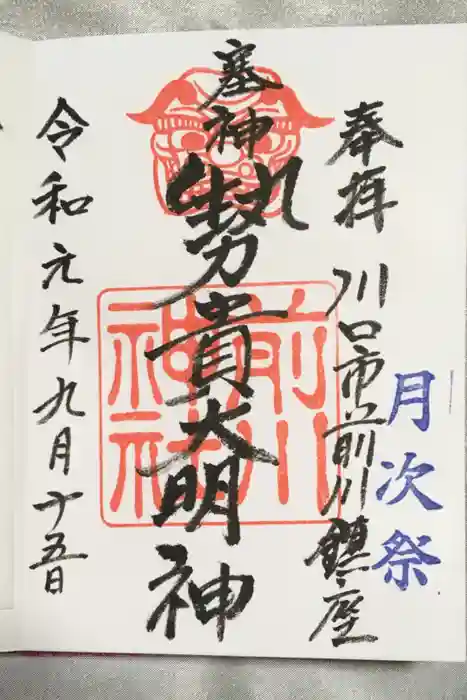 奉拝
川口市前川鎮座
月次祭
塞神
勢貴大明神
前川
神社
令和元年九月十五日